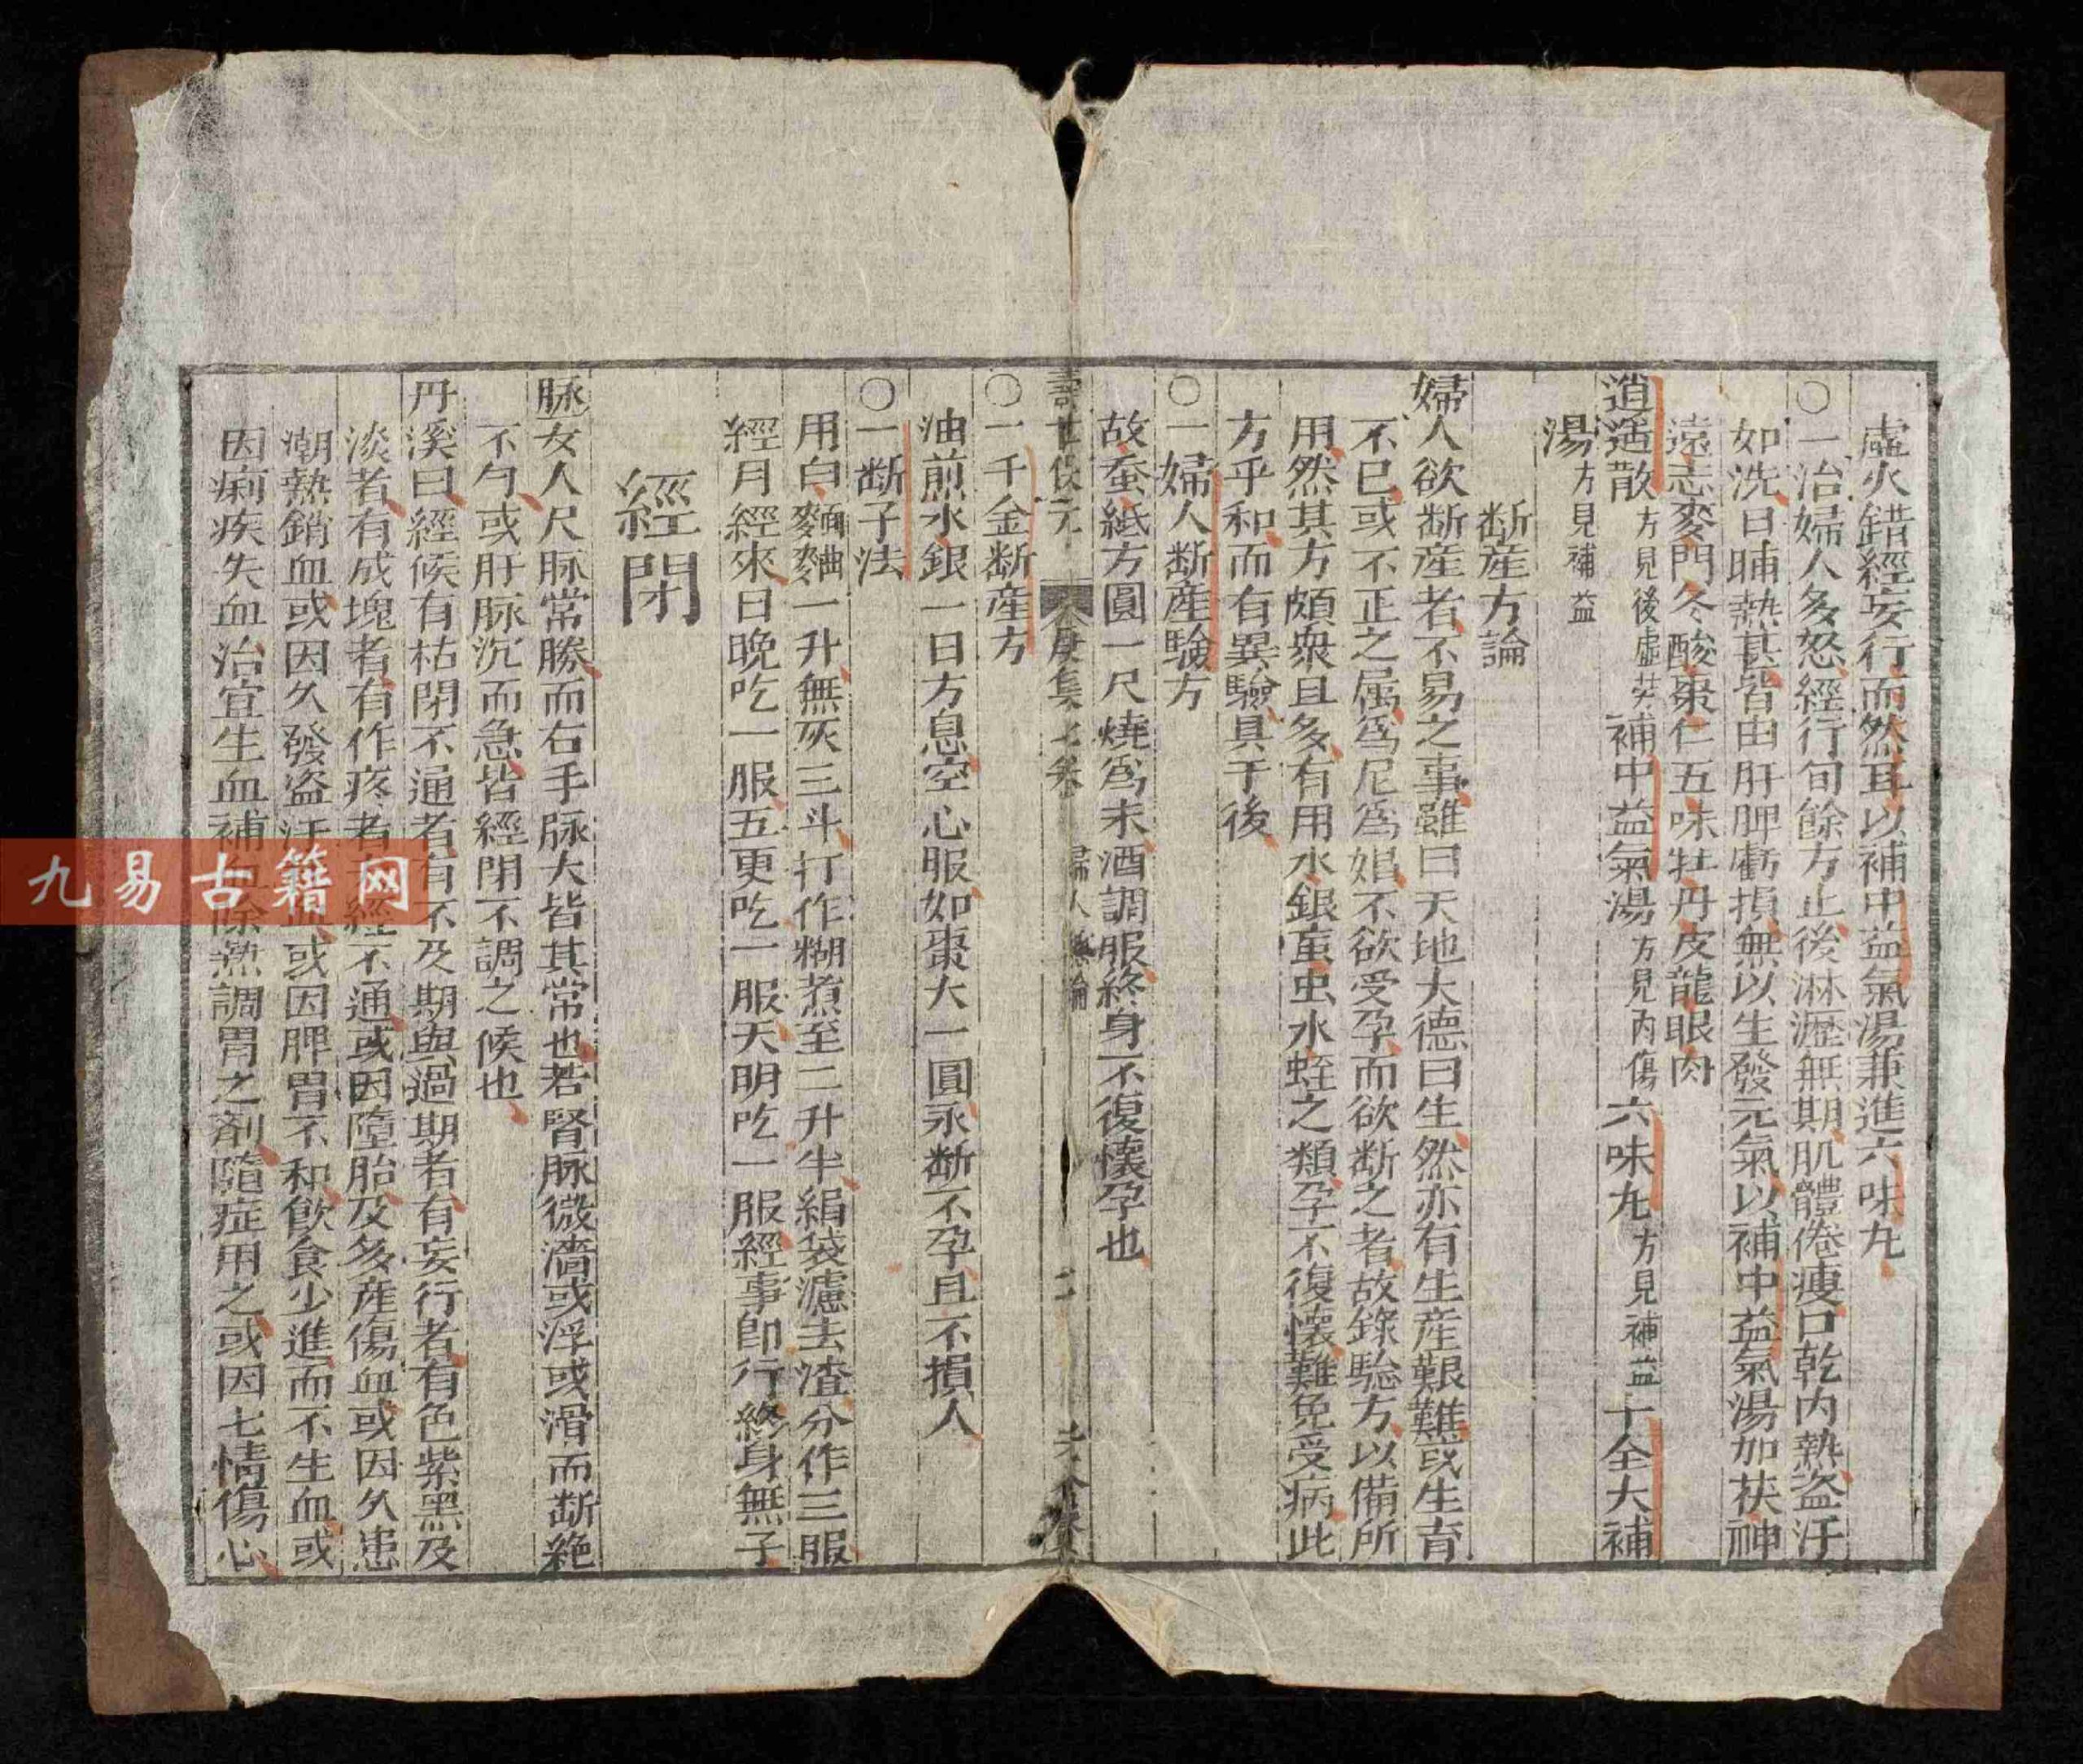 虛火錯經妄行而然耳以補中益氣湯兼進六味丸
〇一治婦人多怒經行旬餘方止後淋瀝無期肌體倦瘦口乾内熱盜汗
如洗日晡熱甚皆由肝脾虧損無以生發元氣以補中益氣湯加茯神
遠志麥門冬酸棗仁五味牡丹皮龍眼肉
逍遥散方見後虛勞補中益氣湯方見内傷六味丸方見補益十全大補
湯方見補益
斷産方論
婦人欲斷産者不易之事雖曰天地大德曰生然亦有生産艱難或生育
不已或不正之属爲尼爲娼不欲受孕而欲斷之者故錄驗方以備所
用然其方頗衆且多有用水銀䖟虫水蛭之類孕不復懐難免受病此
方乎和而有異驗具于後
〇一婦人斷産驗方
故蚕紙方圓一尺燒爲末酒調服終身不復懐孕也
壽世保元 庚集七卷 婦人 二
〇一千金斷産方
油煎水銀一日方息空心服如棗大一圓永斷不孕且不損人
〇一斷子法
用白麵麯一升無灰三斗打作糊煮至二升半絹袋濾去渣分作三服
經月經來日晚吃一服五更吃一服天明吃一服經事即行終身無子
經閉
脉女人尺脉常勝而右手脉大皆其常也若腎脉微濇或浮或滑而斷絶
不匀或肝脉沉而急皆經閉不調之候也
丹溪曰經候有枯閉不通者有不及期與過期者有妄行者有色紫黑及
淡者有成塊者有作疼者經不通或因墮胎及多産傷血或因久患
潮熱銷血或因久發盜汗血或因脾胃不和飲食少進而不生血或
因痢疾失血治宜生血補血除熱調胃之剤隨症用之或因七情傷心
九易古籍网